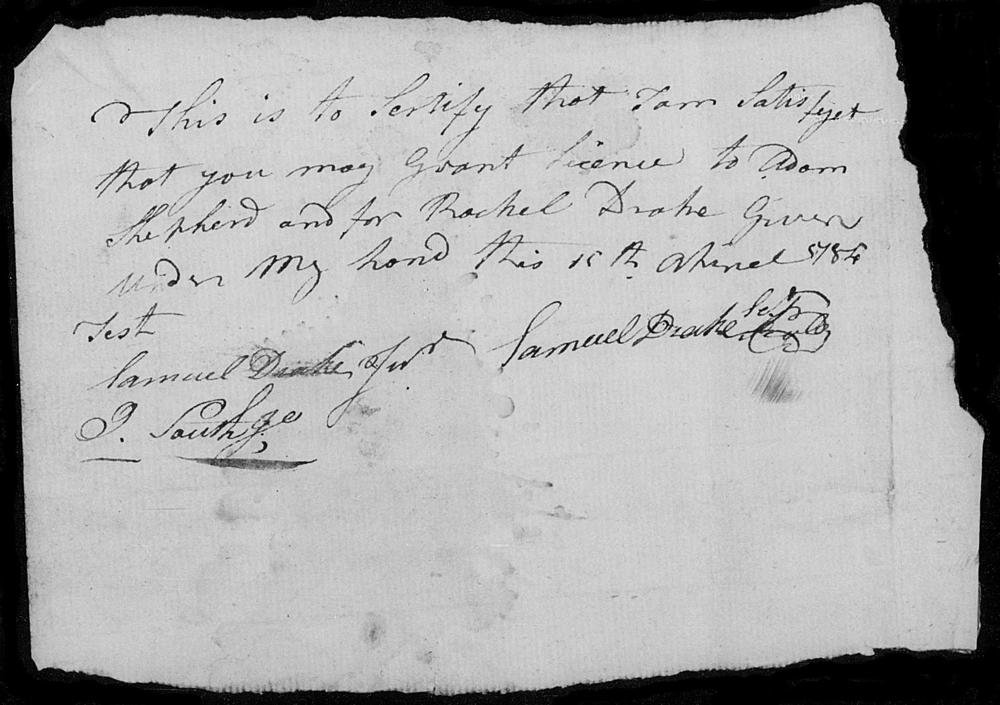 This is to Sertify that I am Satisfyet
that you may Grant Licence to Adam
Shepherd and for Rachel Drake Given
under my hand this 15th 1784
Test
Samuel Drake Jur
Samuel Drake
J. South